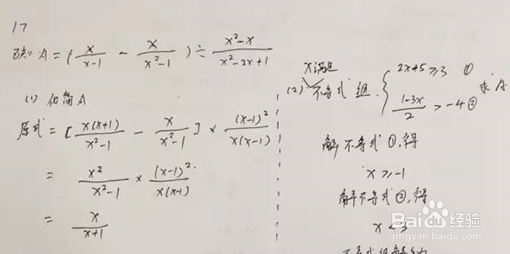 17
已知 A = (x/(x-1) - x/(x²-1)) ÷ (x²-x)/(x²-2x+1)
(1) 化简A
原式 = [x(x+1)/(x²-1) - x/(x²-1)] × (x-1)²/(x(x-1))
= x²/(x²-1) × (x-1)²/(x(x-1))
= x/(x+1)
x满足
(2) 不等式组 { 2x+5≥3 ①
(1-3x)/2 > -4 ② 求A
解不等式①,得
x≥-1
解不等式②,得
x<3
Baidu经验
jingyan.baidu.com